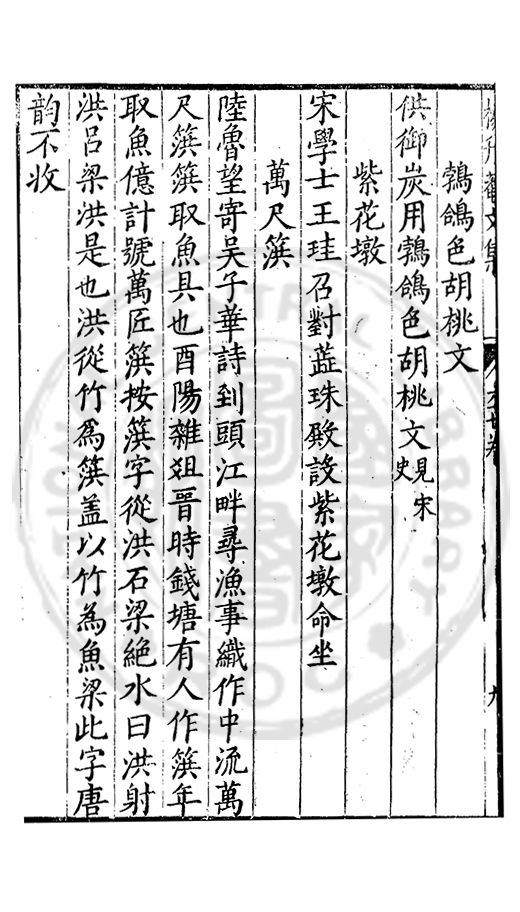 鶉鴿色胡桃文
供御炭用鶉鴿色胡桃文見宋史
紫花墩
宋學士王珪召對蕋珠殿設紫花墩命坐
萬尺篊
陸魯望寄吳子華詩到頭江畔尋漁事織作中流萬
尺篊篊取魚具也酉陽雜爼晉時錢塘有人作篊年
取魚億計號萬匠篊按篊字從洪石梁絶水曰洪射
洪呂梁洪是也洪從竹爲篊盖以竹為魚梁此字唐
韵不收